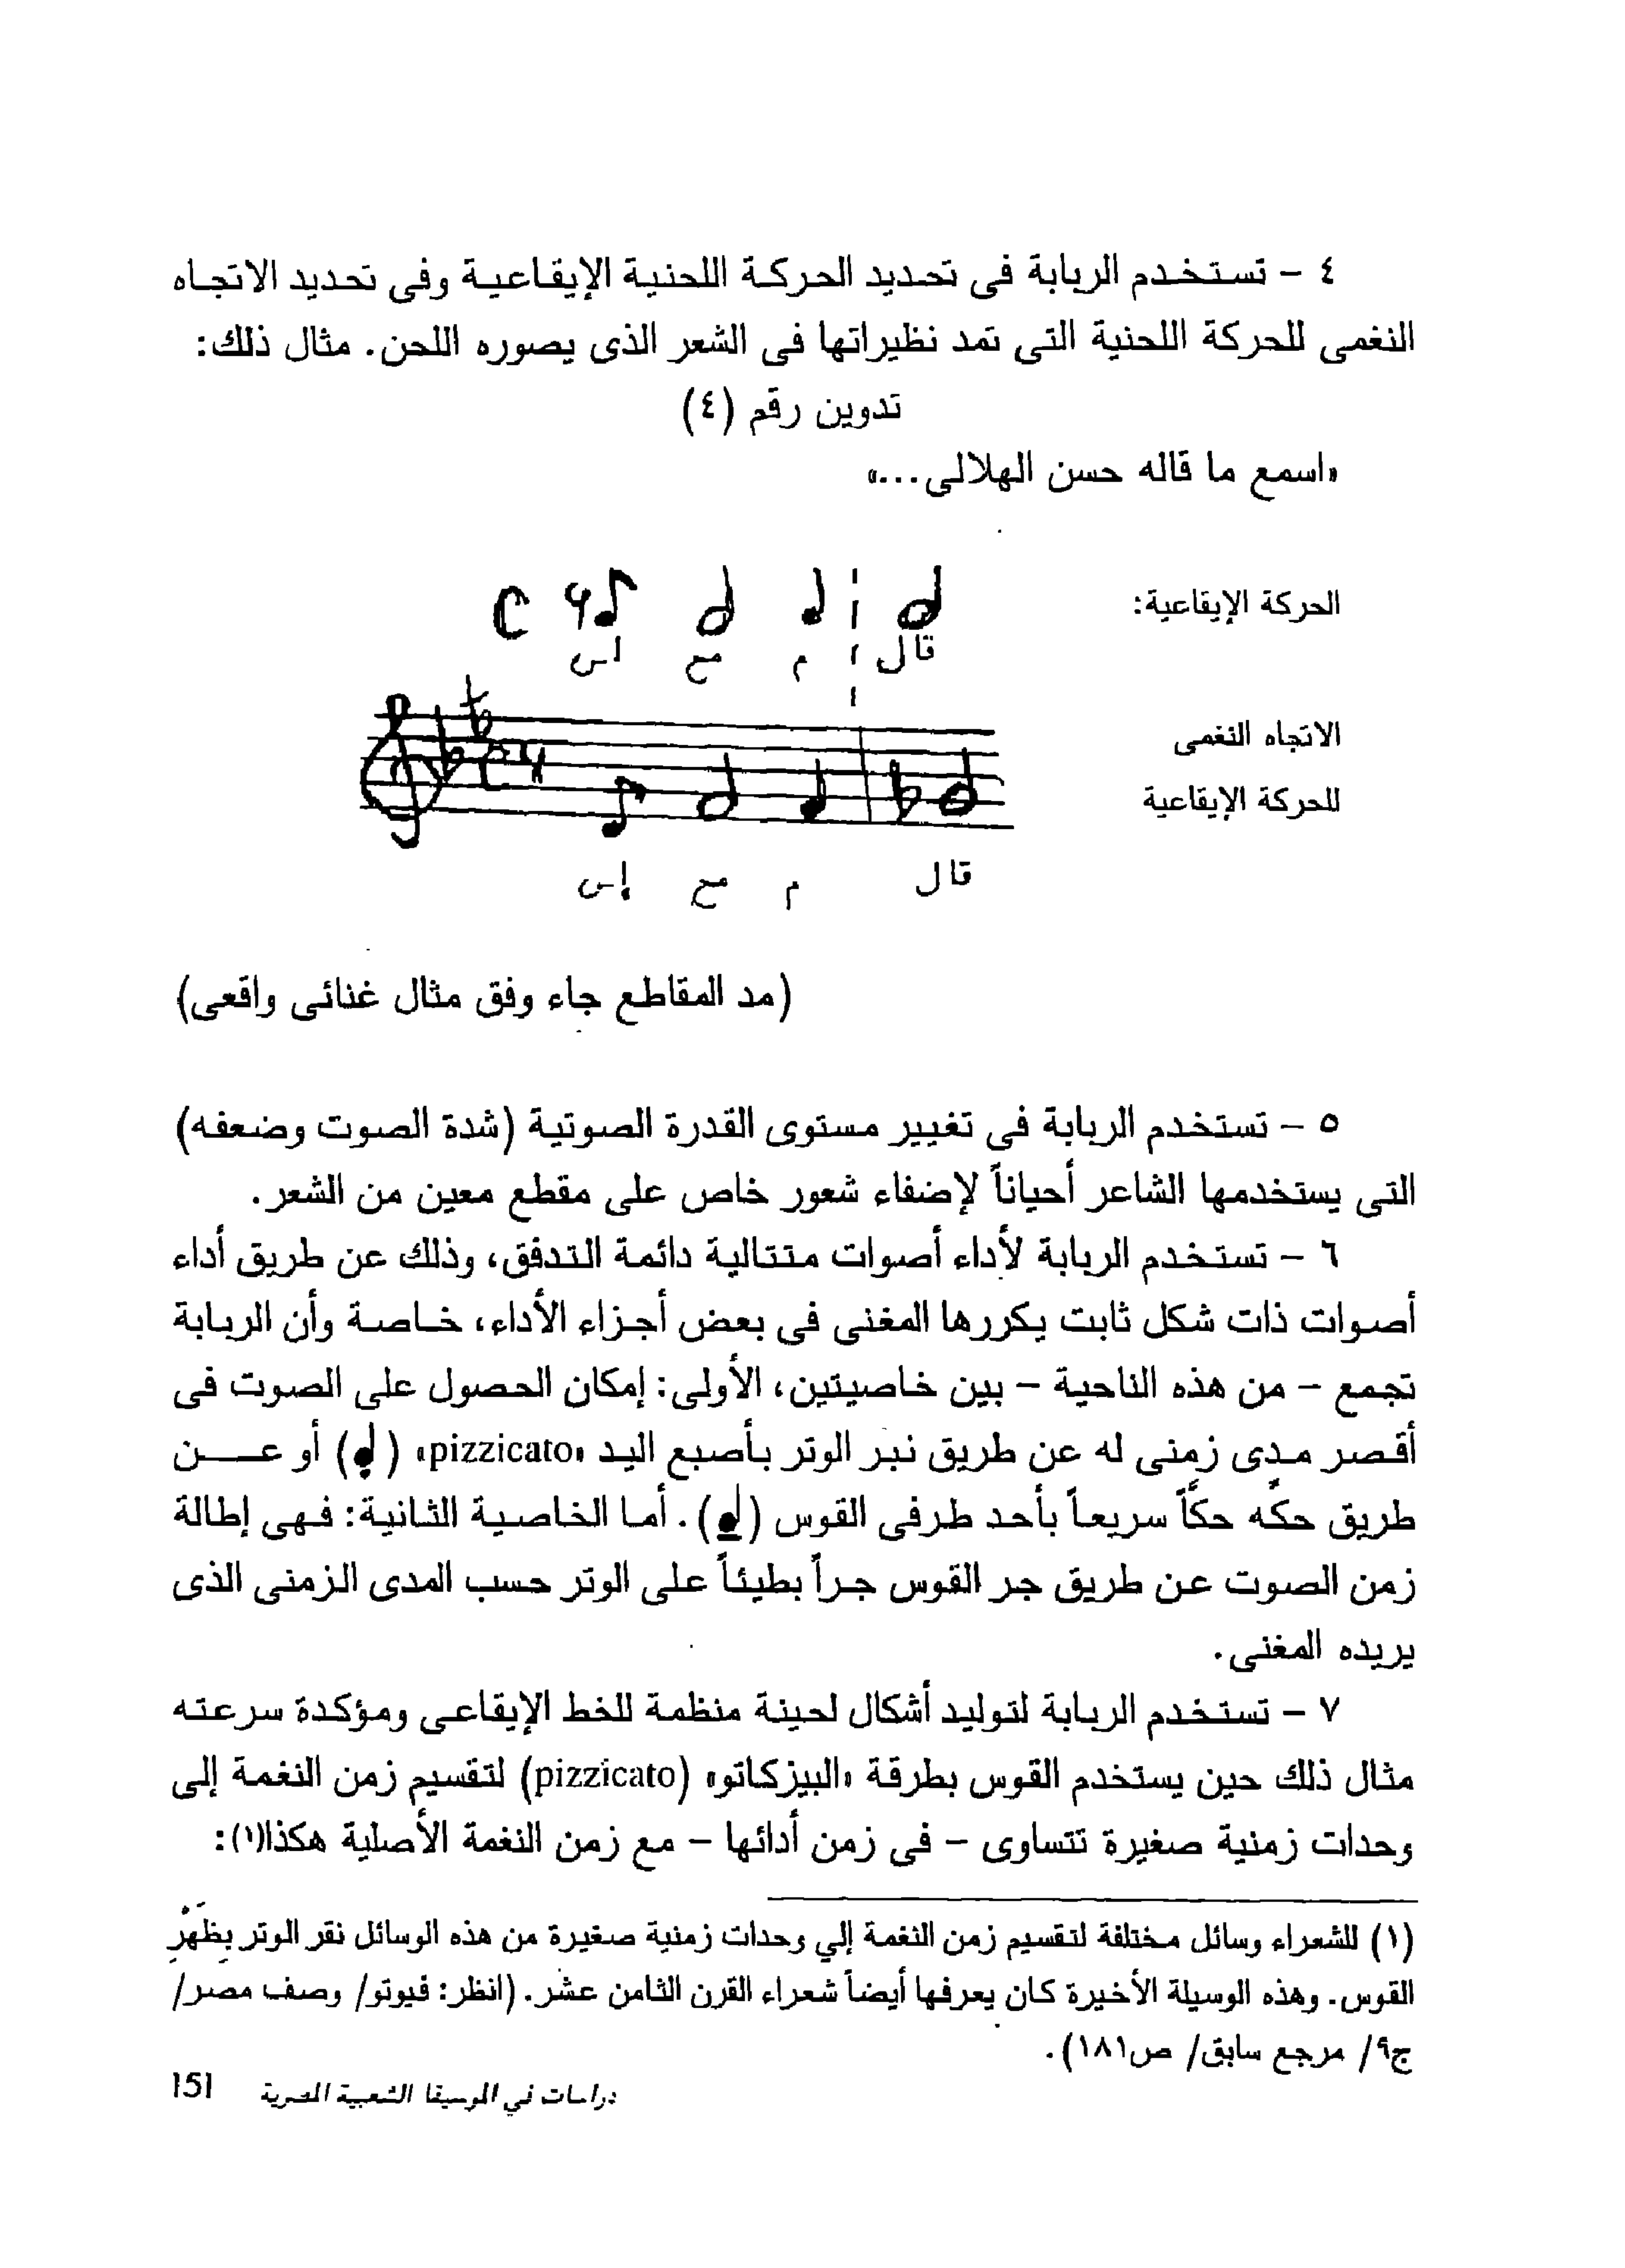 ٤ – تستخدم الربابة فى تحديد الحركة اللحنية الإيقاعية وفى تحديد الاتجاه
النغمى للحركة اللحنية التى تمد نظيراتها فى الشعر الذى يصوره اللحن. مثال ذلك:
تدوين رقم (٤)
«اسمع ما قاله حسن الهلالى...»
الحركة الإيقاعية:
اس مع م قال
الاتجاه النغمى
للحركة الإيقاعية
إس مع م قال
(مد المقاطع جاء وفق مثال غنائى واقعى)
٥ – تستخدم الربابة فى تغيير مستوى القدرة الصوتية (شدة الصوت وضعفه)
التى يستخدمها الشاعر أحياناً لإضفاء شعور خاص على مقطع معين من الشعر.
٦ – تستخدم الربابة لأداء أصوات متتالية دائمة التدفق، وذلك عن طريق أداء
أصوات ذات شكل ثابت يكررها المغنى فى بعض أجزاء الأداء، خاصة وأن الربابة
تجمع – من هذه الناحية – بين خاصيتين، الأولى: إمكان الحصول على الصوت فى
أقصر مدى زمنى له عن طريق نبر الوتر بأصبع اليد «pizzicato» () أو عن
طريق حكّه حكّاً سريعاً بأحد طرفى القوس (). أما الخاصية الثانية: فهى إطالة
زمن الصوت عن طريق جر القوس جراً بطيئاً على الوتر حسب المدى الزمنى الذى
يريده المغنى.
٧ – تستخدم الربابة لتوليد أشكال لحينة منظمة للخط الإيقاعى ومؤكدة سرعته
مثال ذلك حين يستخدم القوس بطرقة «البيزكاتو» (pizzicato) لتقسيم زمن النغمة إلى
وحدات زمنية صغيرة تتساوى – فى زمن أدائها – مع زمن النغمة الأصلية هكذا(١):
(١) للشعراء وسائل مختلفة لتقسيم زمن النغمة إلي وحدات زمنية صغيرة من هذه الوسائل نقر الوتر بِظَهْرِ
القوس. وهذه الوسيلة الأخيرة كان يعرفها أيضاً شعراء القرن الثامن عشر. (انظر: فيوتو/ وصف مصر/
ج٩/ مرجع سابق/ ص١٨١).
دراسات في الموسيقا الشعبية المصرية 151